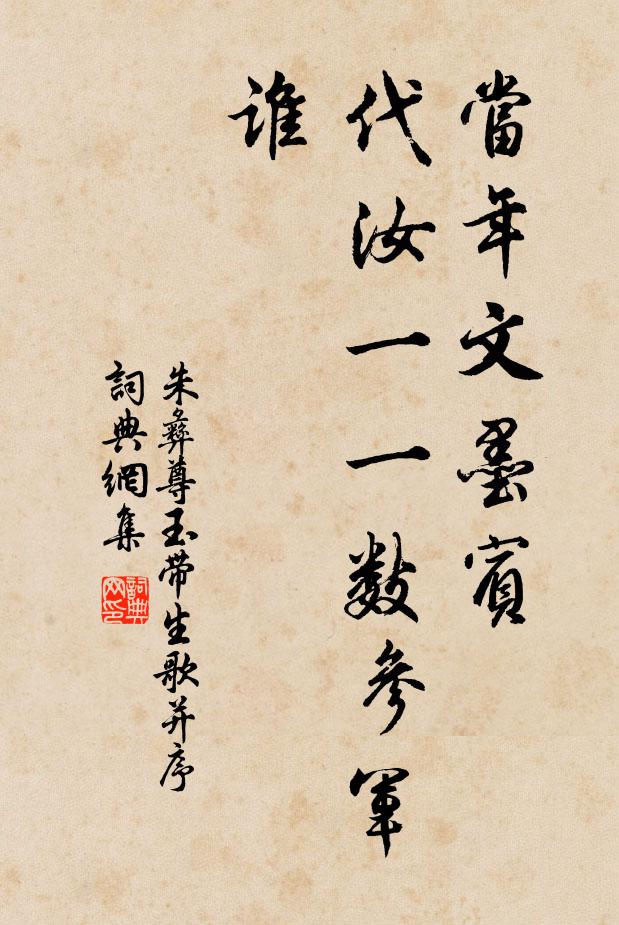 當年文墨賓
代汝一一數參軍
誰
朱彝尊玉帶生歌并序
詞典網集
詞典
网印